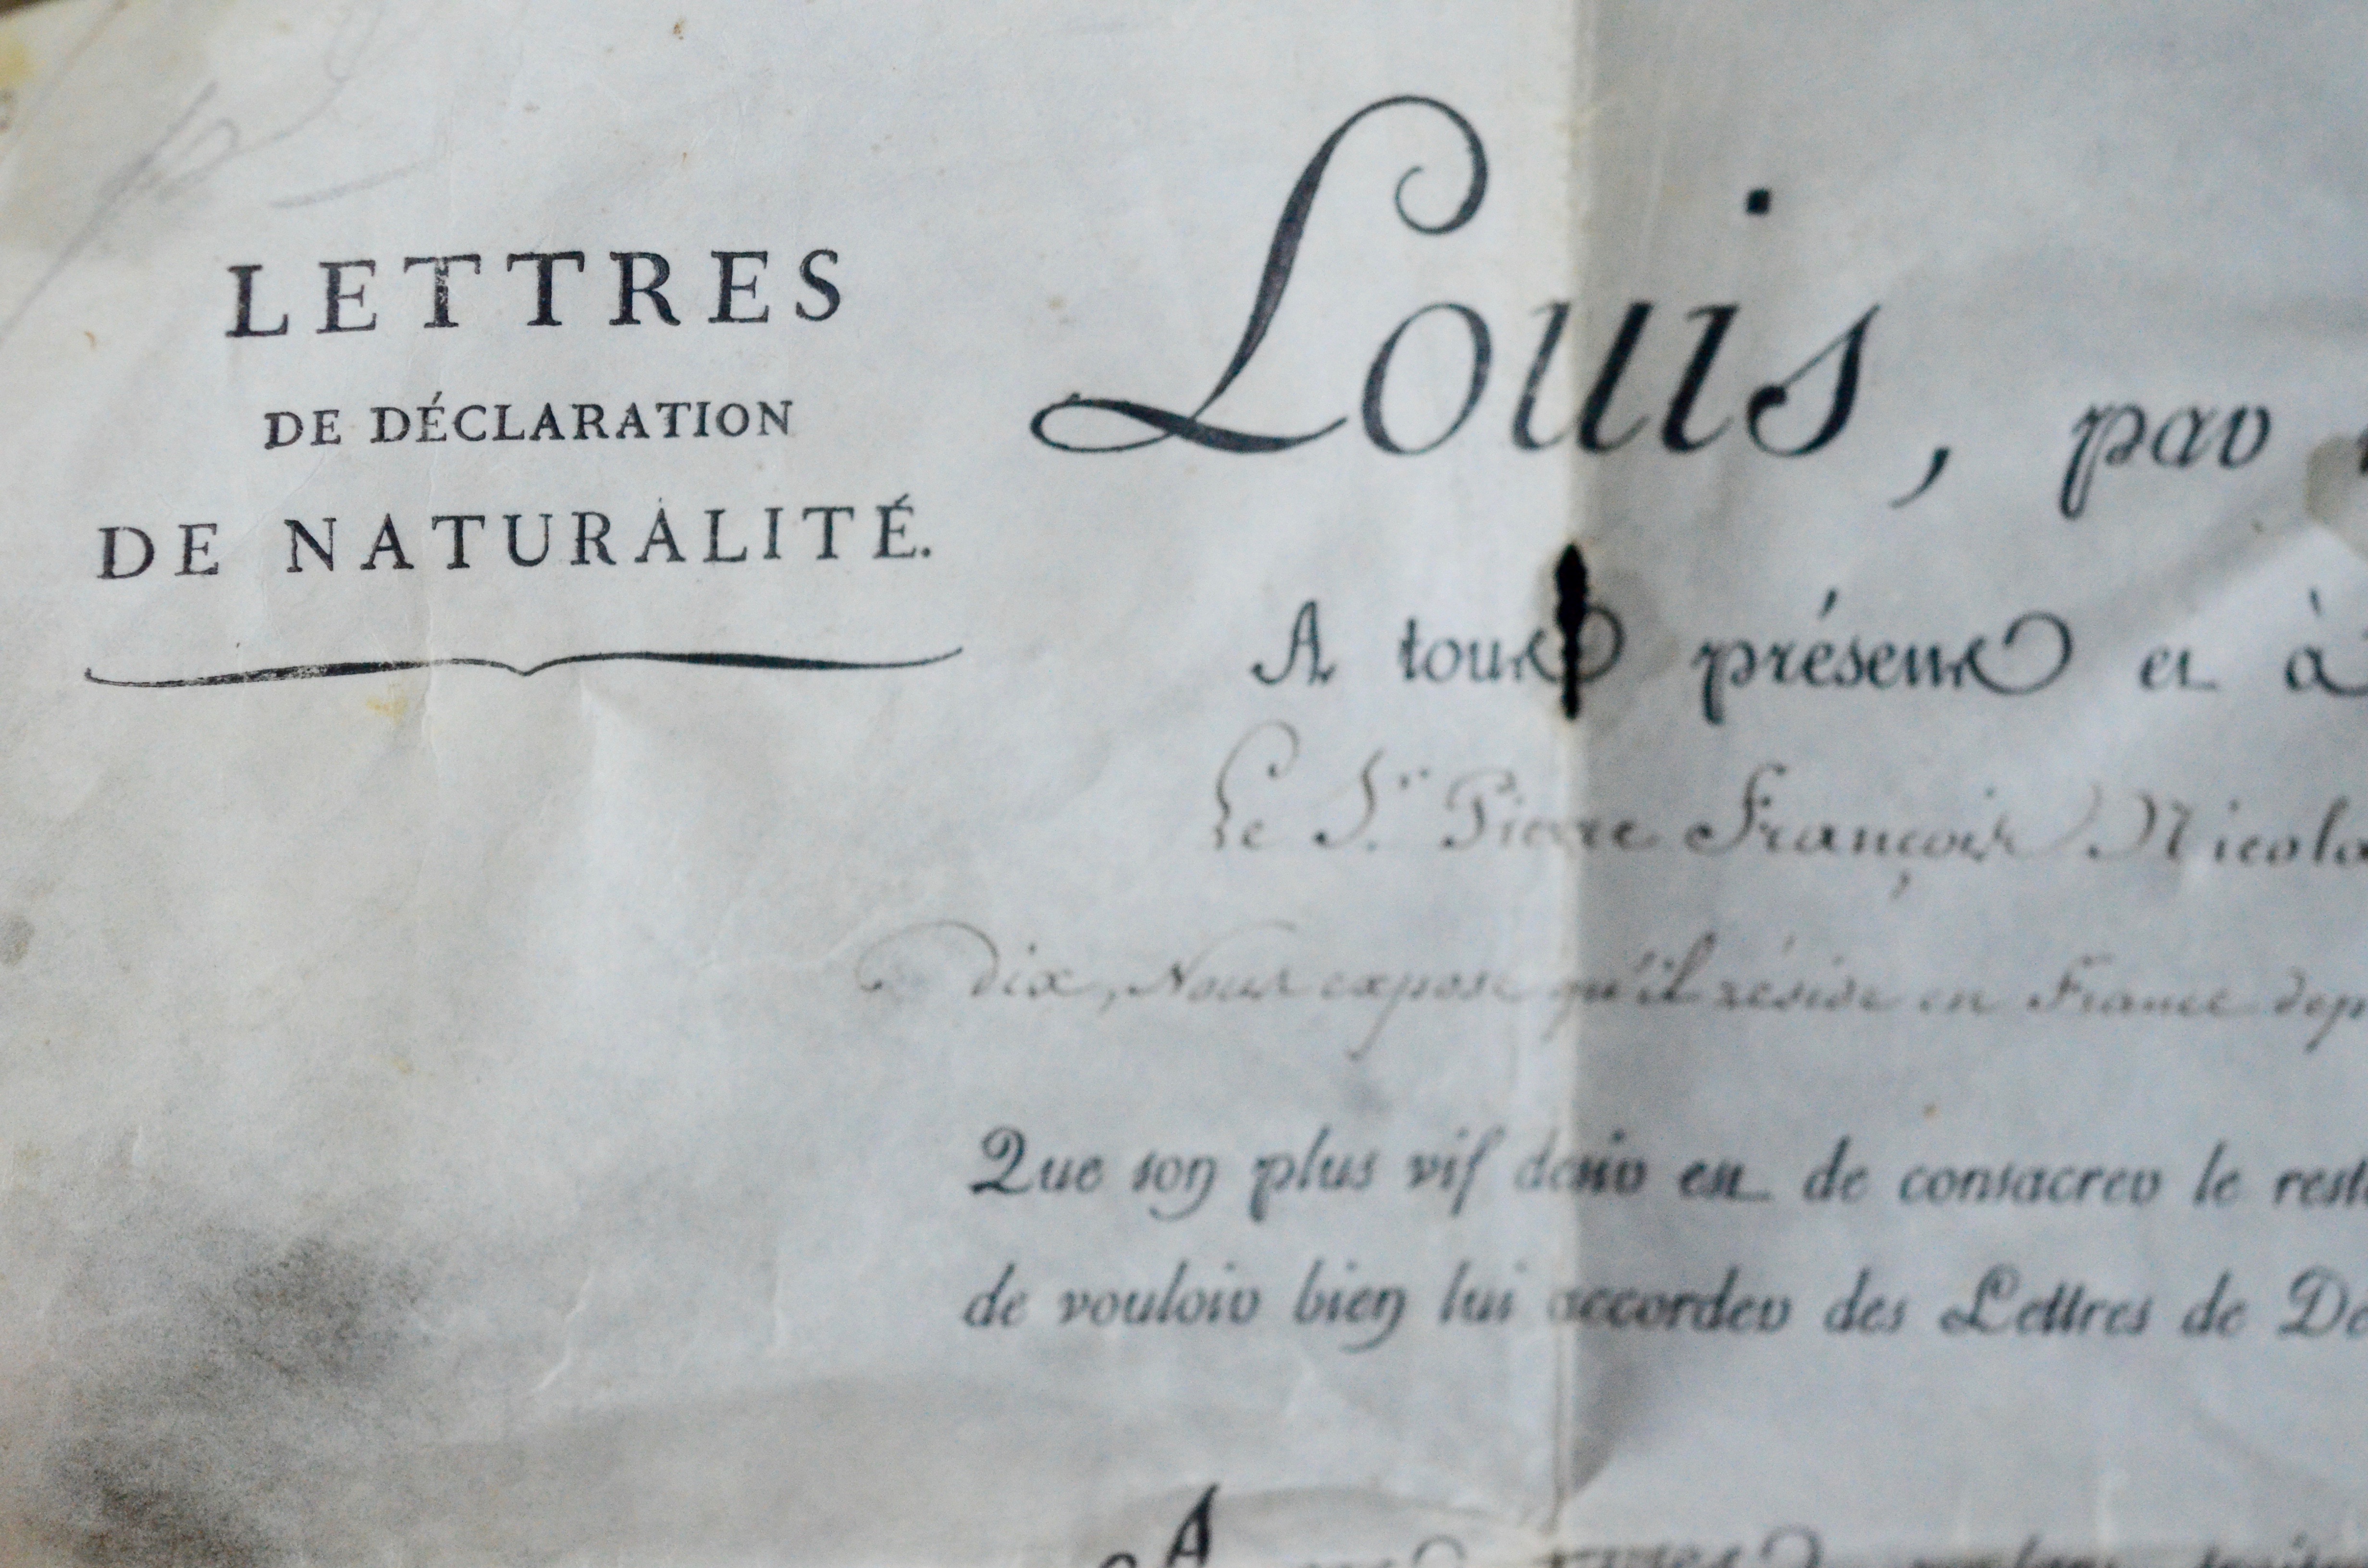 LETTRES
DE DÉCLARATION
DE NATURALITÉ.
Louis, par
A tous présens et à
Le S.r Pierre François Nicola
Dix, Nous expose qu'il réside en France dep
Que son plus vif désir est de consacrer le rest
de vouloir bien lui accorder des Lettres de Dé
A